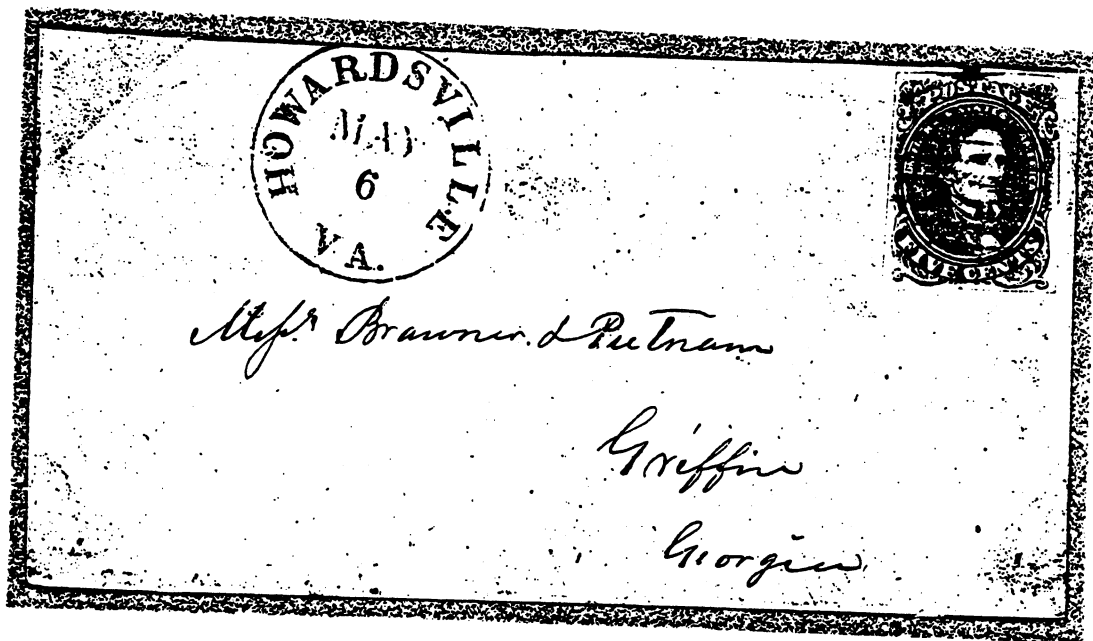 HOWARDSVILLE
MAY
6
VA.
POSTAGE
FIVE CENTS
Messrs Brawner & Putnam
Griffin
Georgia